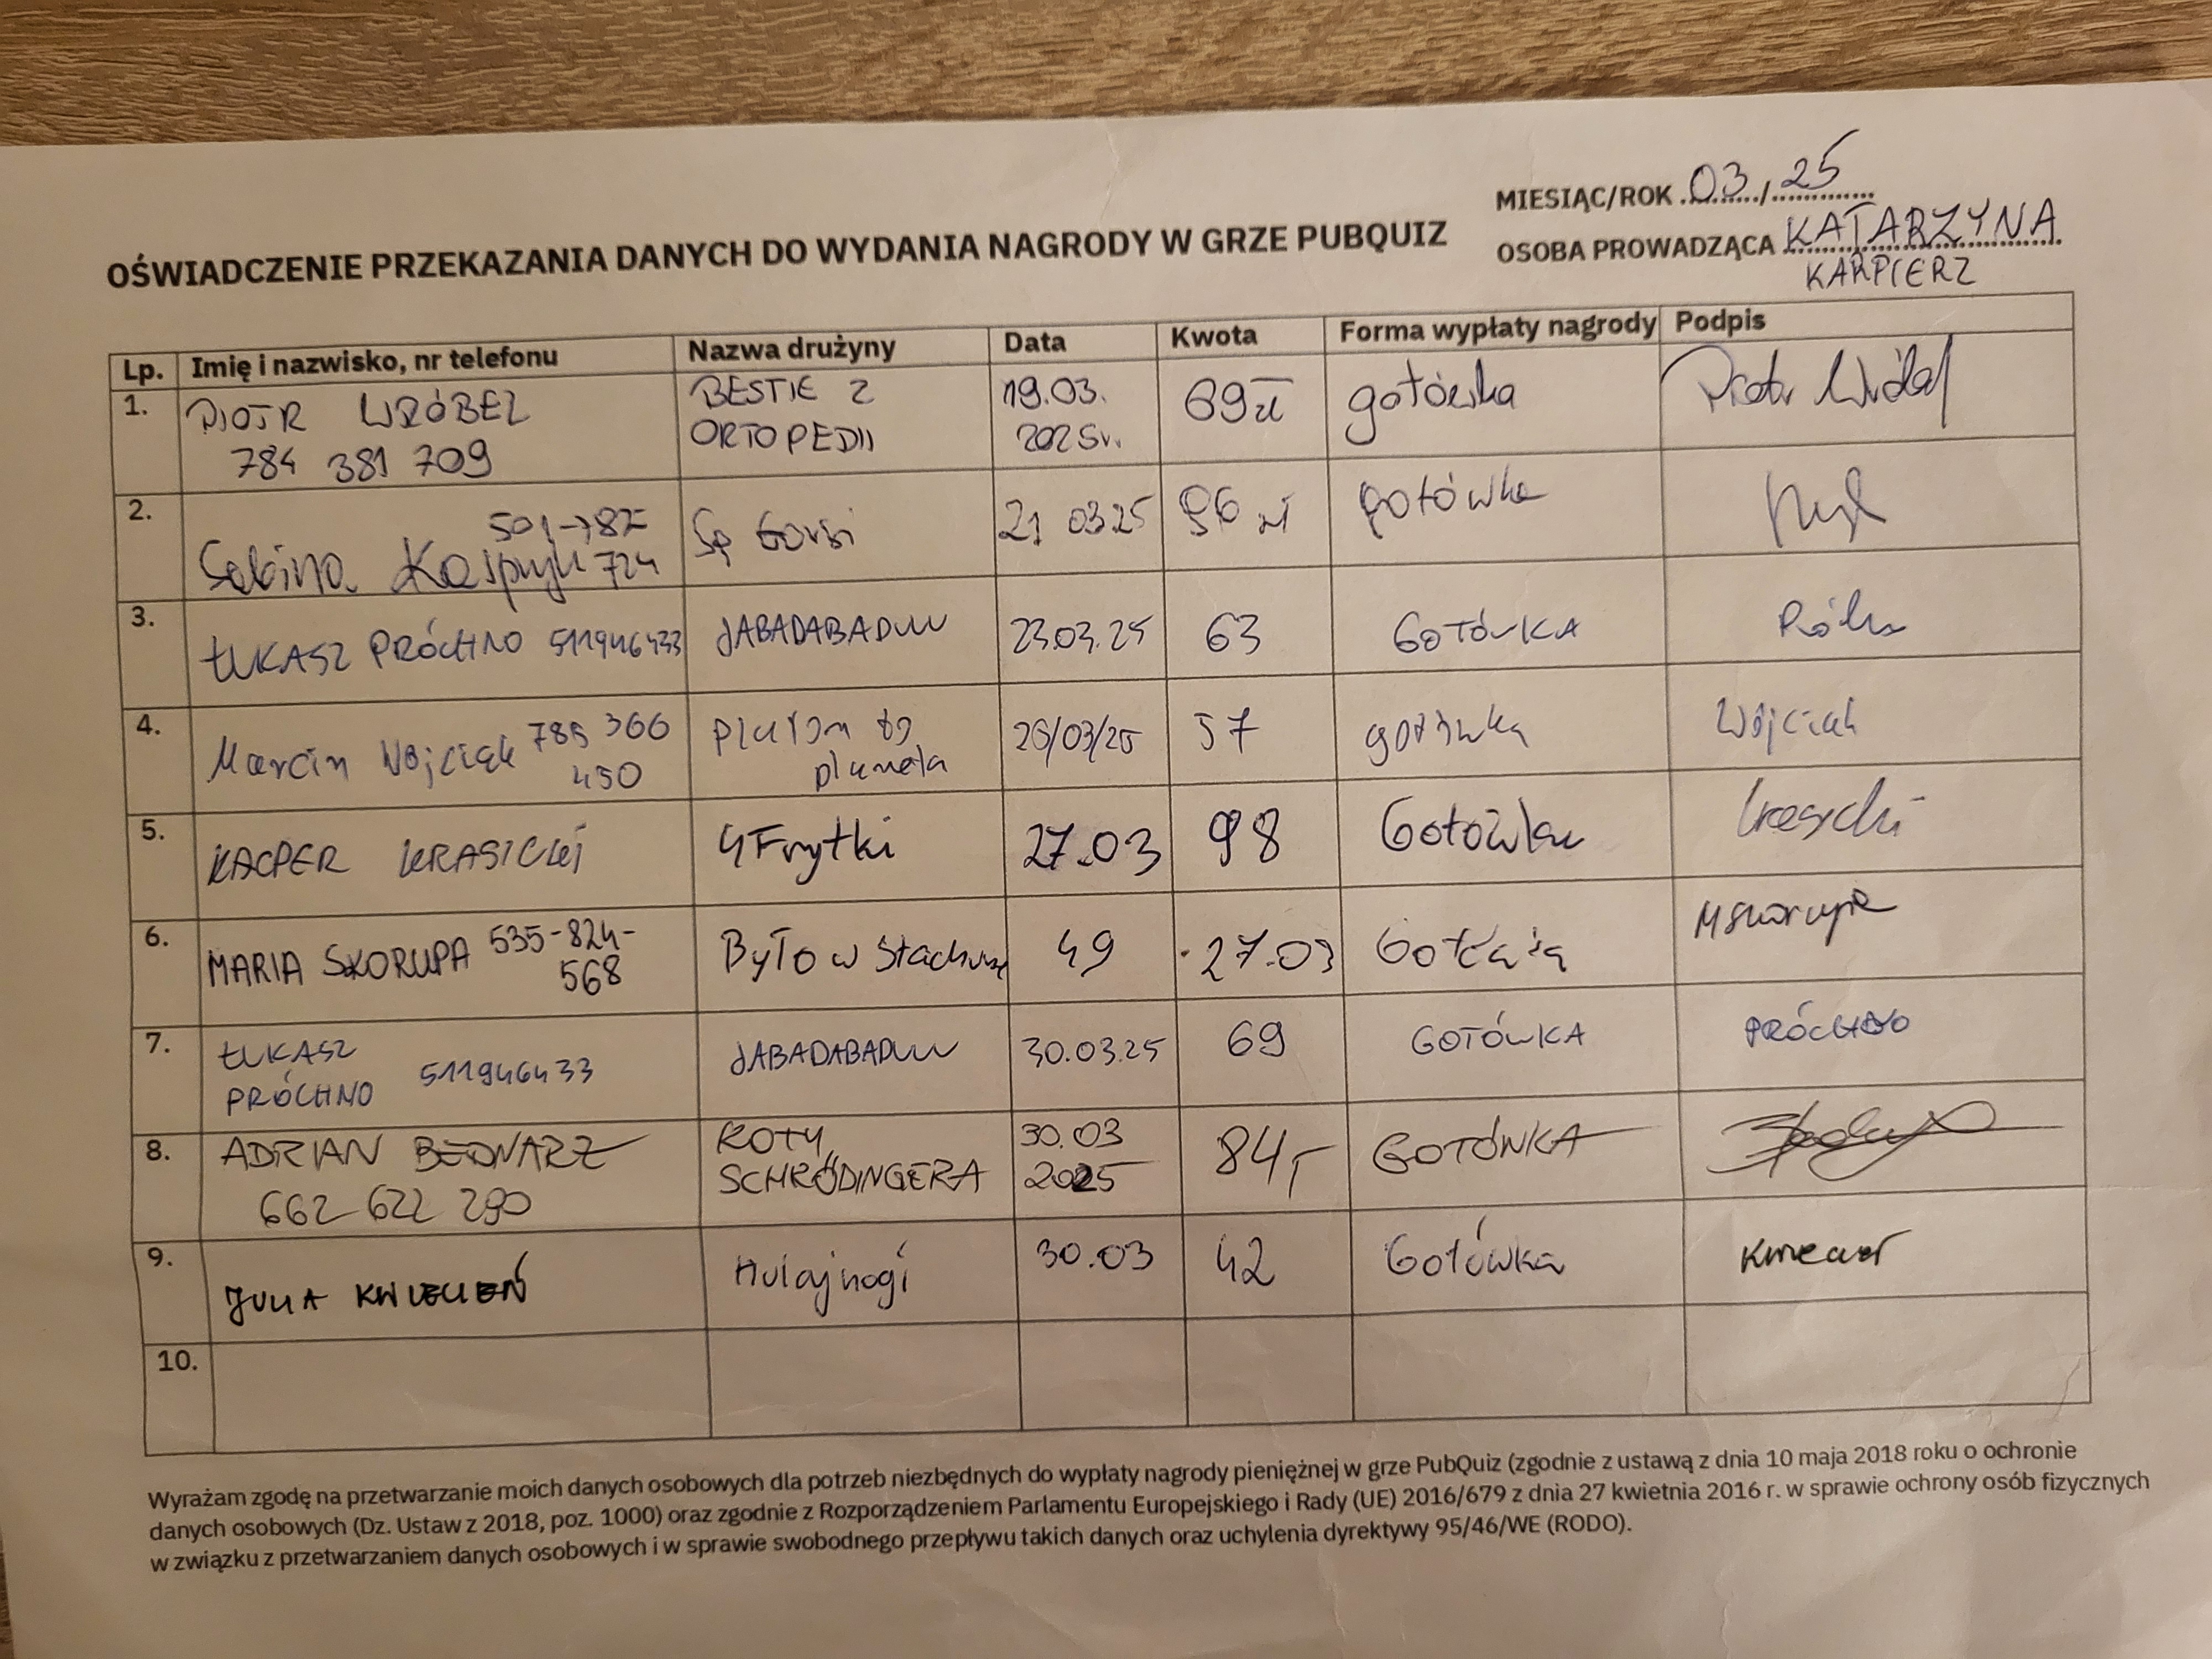 MIESIĄC/ROK 03/25
OŚWIADCZENIE PRZEKAZANIA DANYCH DO WYDANIA NAGRODY W GRZE PUBQUIZ
OSOBA PROWADZĄCA KATARZYNA
KARPIERZ
Lp. Imię i nazwisko, nr telefonu Nazwa drużyny Data Kwota Forma wypłaty nagrody Podpis
1. PIOTR WRÓBEL BESTIE Z 19.03. 69zł gotówka Piotr Wróbel
784 381 709 ORTOPEDII 2025r.
2. 501 Są Gorsi 21 03.25 96 zł gotówka
Sabina Kasprzyk 724
3. ŁUKASZ PRÓCHNO 511946433 JABADABADUU 23.03.25 63 GOTÓWKA
4. Marcin Wójciak 785 366 Pluton to 26/03/25 57 gotówka Wójciak
450 planeta
5. KACPER KRASICKI 4Frytki 27.03 98 Gotówka Krasicki
6. MARIA SKORUPA 535-824- Było w Stachursky 49 27.03 Gotówka MSkorupa
568
7. ŁUKASZ JABADABADUU 30.03.25 69 GOTÓWKA PRÓCHNO
PRÓCHNO 511946433
8. ADRIAN BEDNARZ KOTY 30.03 84,- GOTÓWKA
662 622 290 SCHRÖDINGERA 2025
9. JULIA KWIECIEŃ Hulajnogi 30.03 42 Gotówka Kwiecień
10.
Wyrażam zgodę na przetwarzanie moich danych osobowych dla potrzeb niezbędnych do wypłaty nagrody pieniężnej w grze PubQuiz (zgodnie z ustawą z dnia 10 maja 2018 roku o ochronie
danych osobowych (Dz. Ustaw z 2018, poz. 1000) oraz zgodnie z Rozporządzeniem Parlamentu Europejskiego i Rady (UE) 2016/679 z dnia 27 kwietnia 2016 r. w sprawie ochrony osób fizycznych
w związku z przetwarzaniem danych osobowych i w sprawie swobodnego przepływu takich danych oraz uchylenia dyrektywy 95/46/WE (RODO).